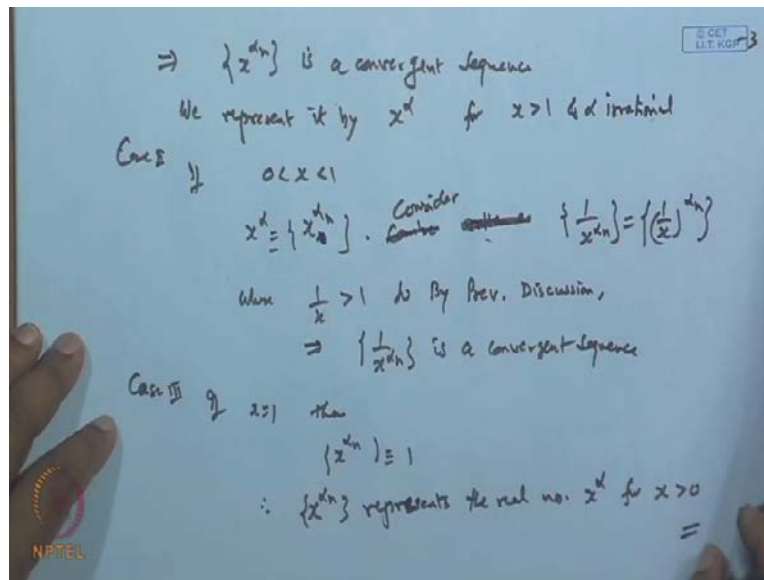 © CET
I.I.T. KGP -3
⇒ {x^{αn}} is a convergent sequence
We represent it by x^α for x>1 & α irrational
Case II If 0<x<1
x^α ≡ {x^{αn}}. Consider {1/x^{αn}} = {(1/x)^{αn}}
where 1/x > 1 so By Prev. Discussion,
⇒ {1/x^{αn}} is a convergent sequence
Case III If x=1 then
{x^{αn}} ≡ 1
∴ {x^{αn}} represents the real no. x^α for x>0
NPTEL